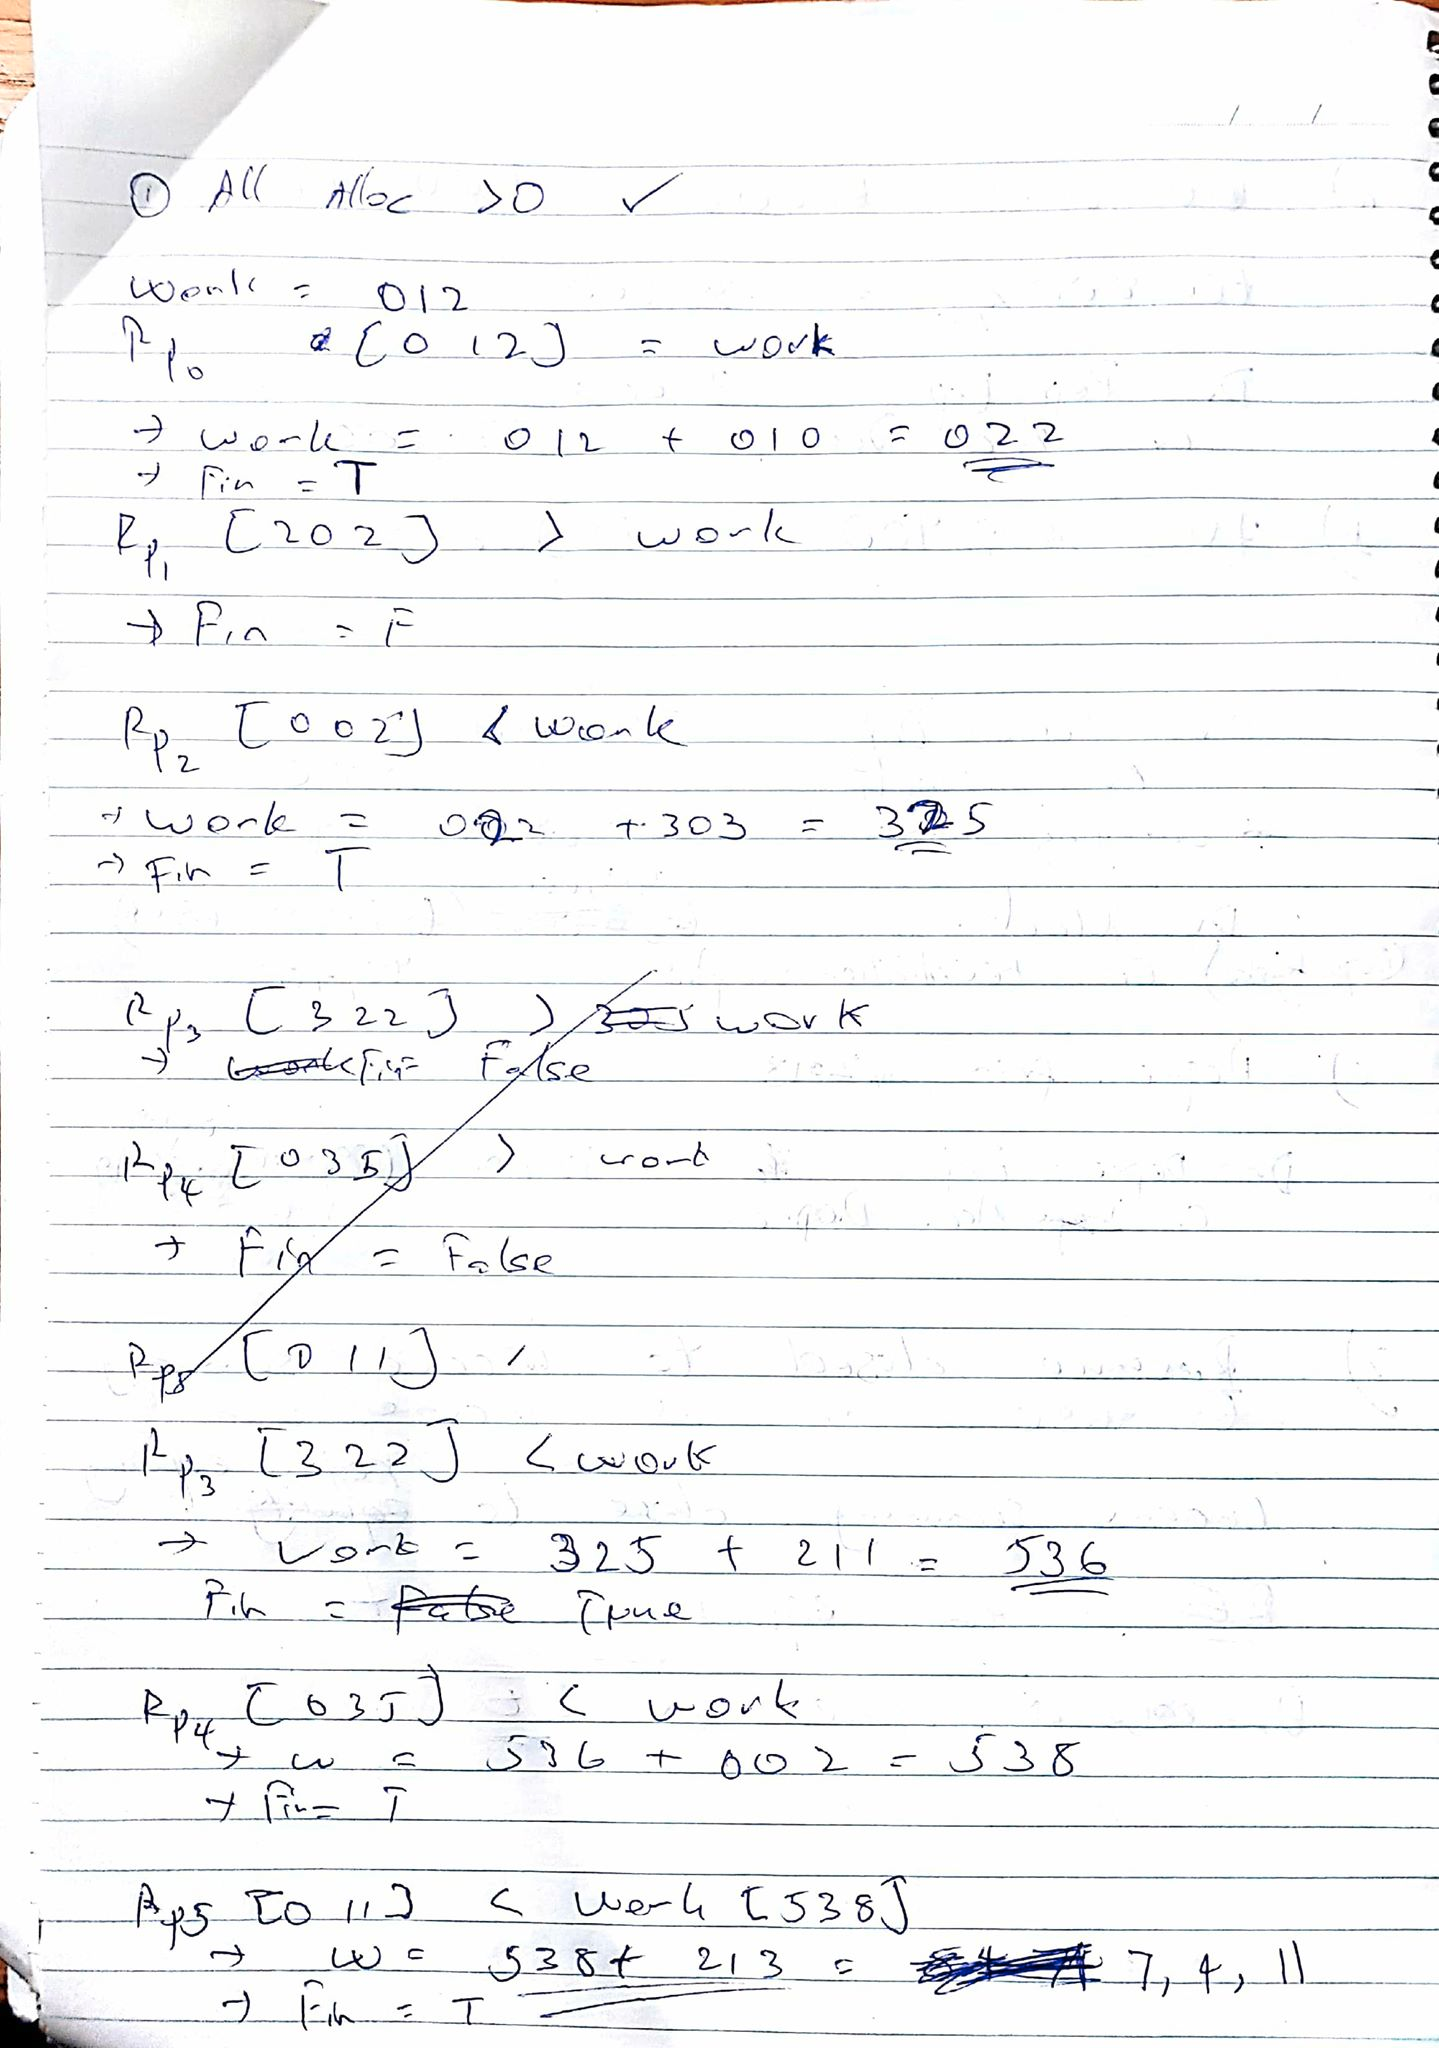 ① All Alloc >0 ✓
Work = 012
R P0 [0 12] = work
→ work = 012 + 010 = 022
→ Fin = T
R P1 [202] > work
→ Fin = F
R P2 [002] < work
→ work = 022 + 303 = 325
→ Fin = T
R P3 [322] > work
→ Fin= False
R P4 [035] > work
→ Fin = False
R P5 [011]
R P3 [322] < work
→ work = 325 + 211 = 536
Fin = False True
R P4 [035] < work
→ w = 536 + 002 = 538
→ Fin= T
R P5 [011] < Work [538]
→ w = 538+ 213 = 7, 4, 11
→ Fin = T